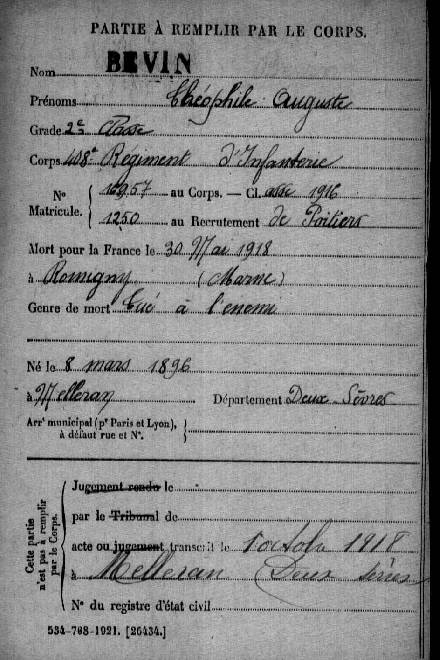 PARTIE À REMPLIR PAR LE CORPS.
Nom BEVIN
Prénoms Théophile Auguste
Grade 2e Classe
Corps 408e Régiment d'Infanterie
No Matricule. { 16957 au Corps. — Cl. asse 1916
1250 au Recrutement de Poitiers
Mort pour la France le 30 Mai 1918
à Romigny (Marne)
Genre de mort Tué à l'ennemi
Né le 8 mars 1896
à Melleran Département Deux Sèvres
Arrt municipal (pr Paris et Lyon), à défaut rue et No. }
Cette partie n'est pas à remplir par le Corps.
Jugement rendu le
par le Tribunal de
acte ou jugement transcrit le 1 octobr 1918
à Melleran Deux Sèvres
No du registre d'état civil
534-708-1921. [26434.]